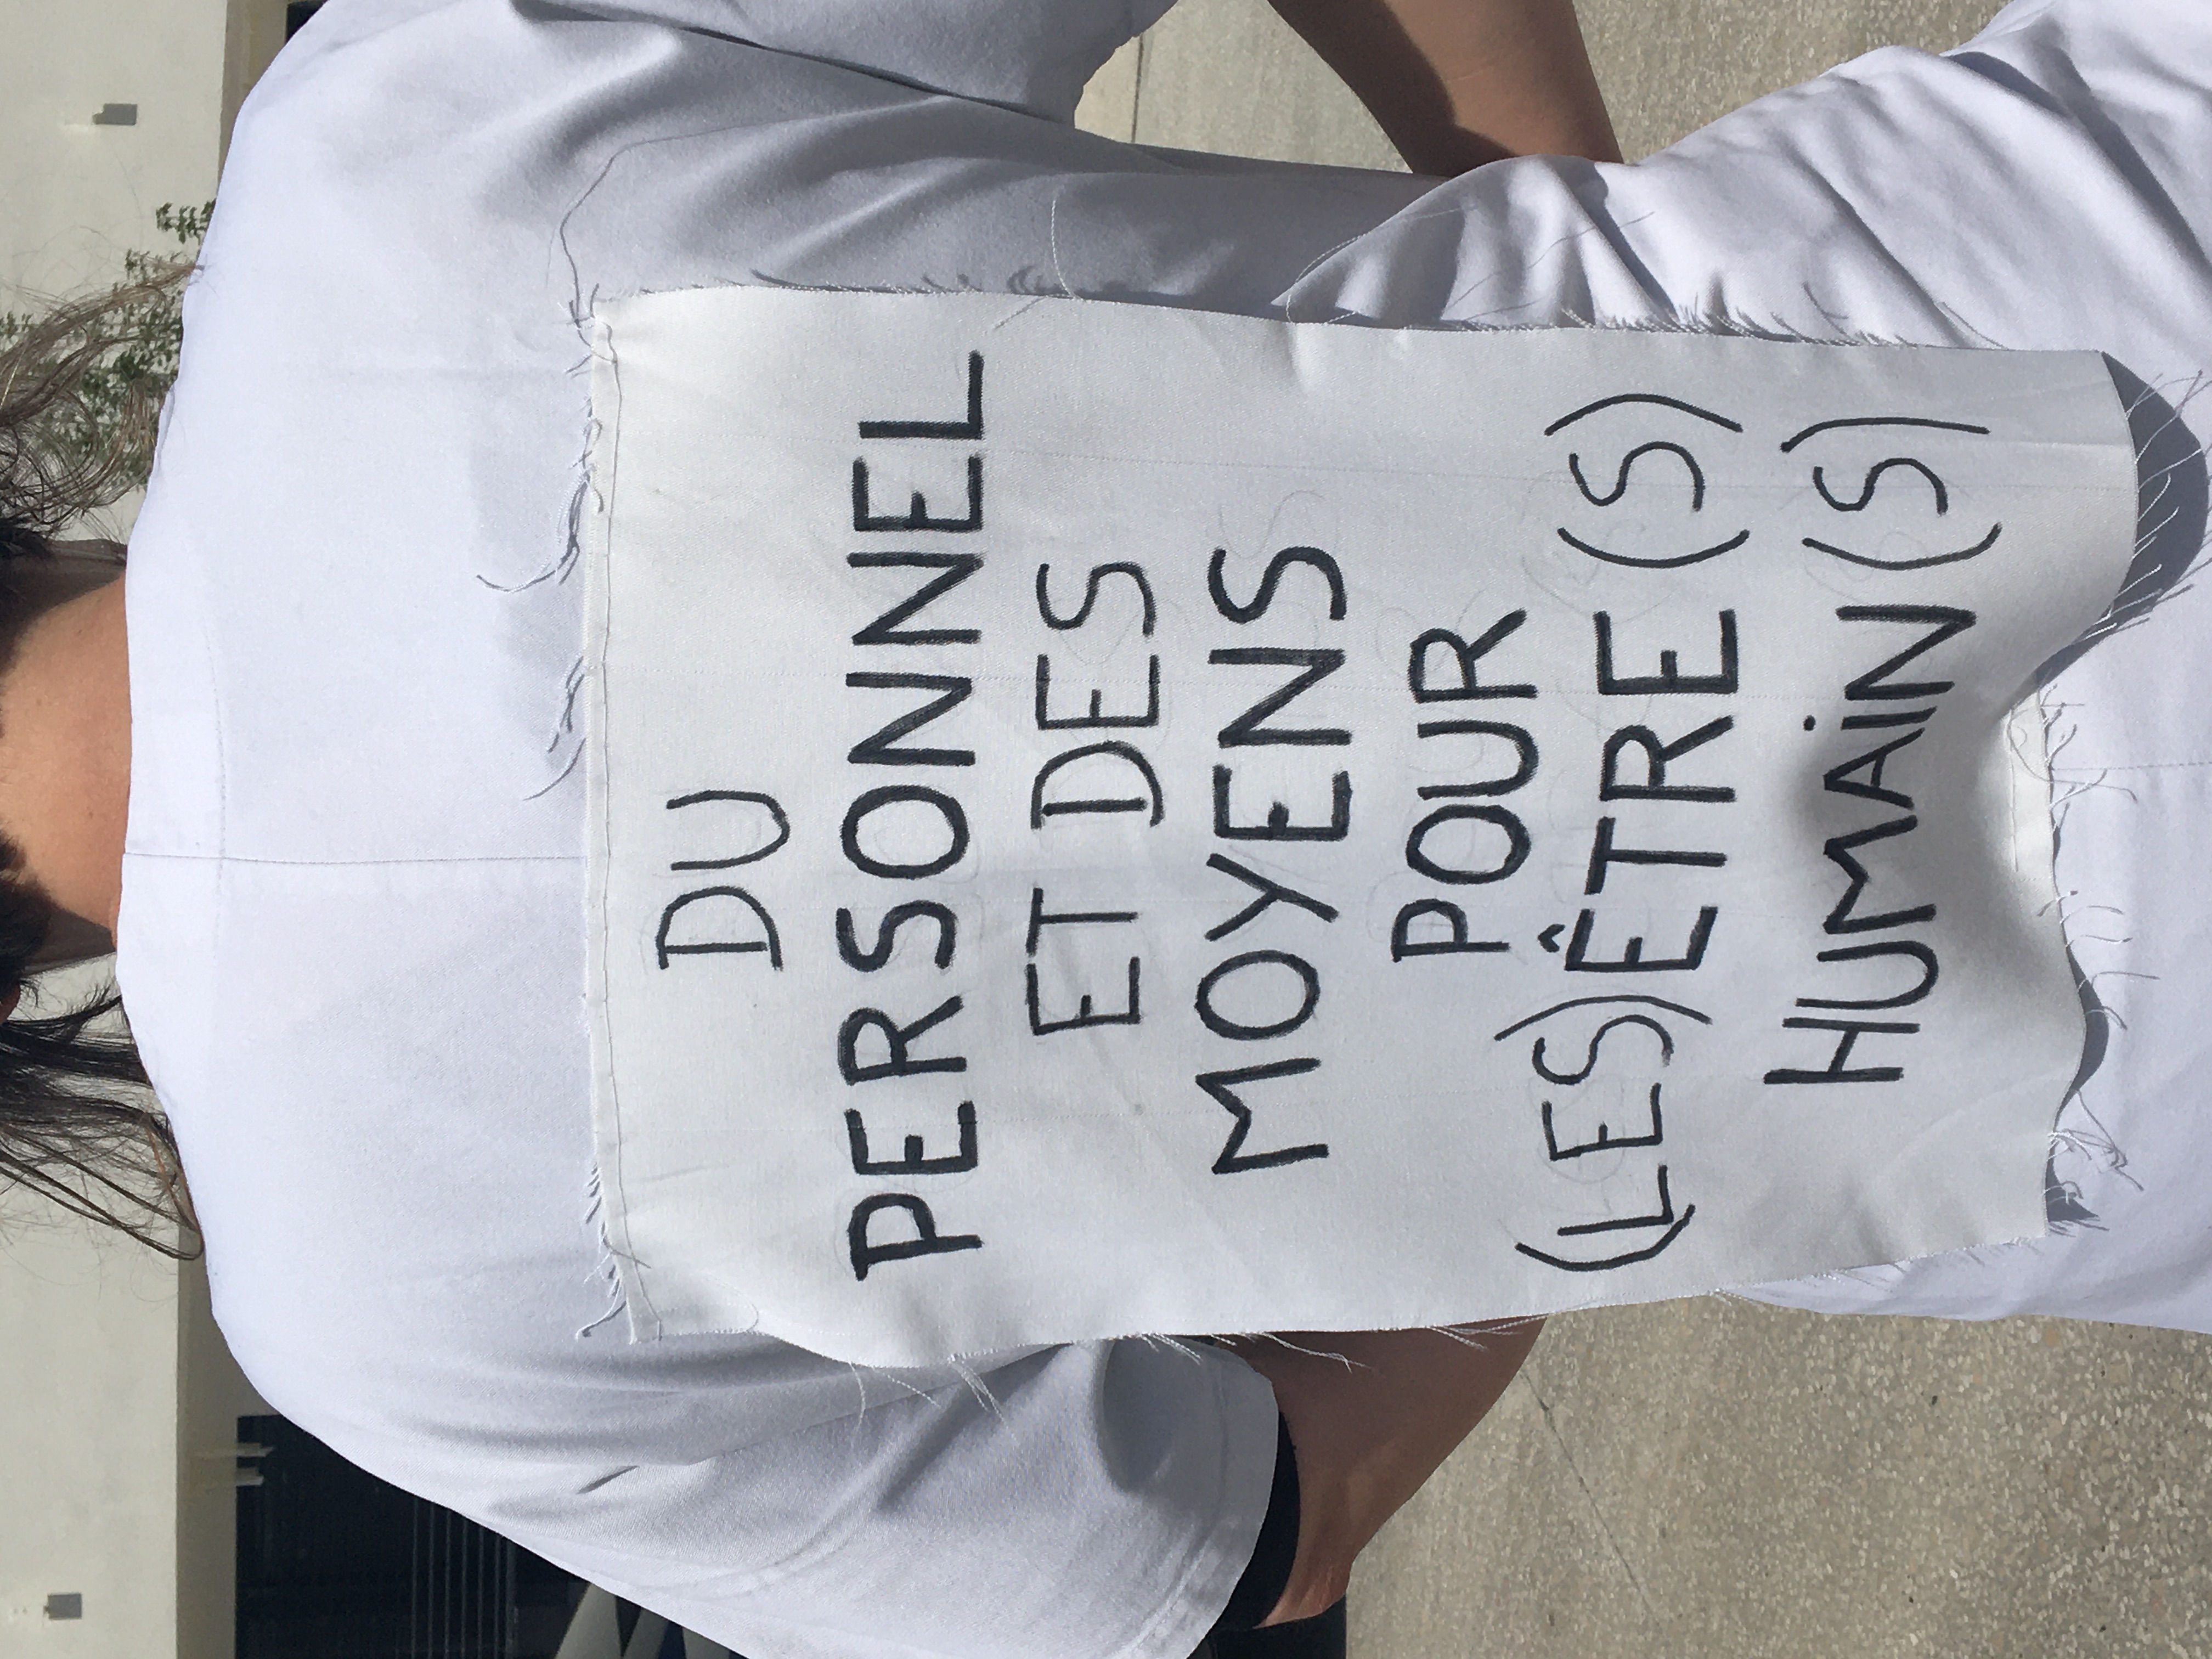 DU
PERSONNEL
ET DES
MOYENS
POUR
(LES) ÊTRE(S)
HUMAiN(S)